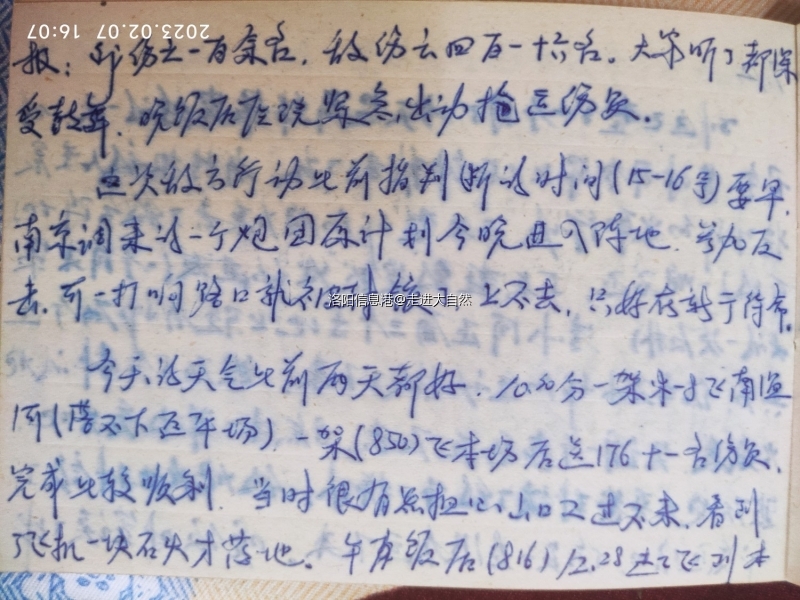 2023.02.07 16:07
报：我伤亡一百余名，敌伤亡四百一十六名。大家听了都深
受鼓舞。晚饭后医院紧急出动抢运伤员。
这次敌方行动比前指判断的时间(15-16号)要早，
南京调来的一个炮团原计划今晚进入阵地，参加反
击，可一打响路口就被封锁了，上不去，只好在新于待命。
洛阳信息港@走进大自然
今天的天气比前两天都好。10.20分一架米-8飞南温
河(落不下返平场)，一架(850)飞本场后送176十一名伤员，
完成比较顺利。当时很有点担心山口又进不来，看到
了飞机一块石头才落地。午存饭后(816)12.28进飞到本